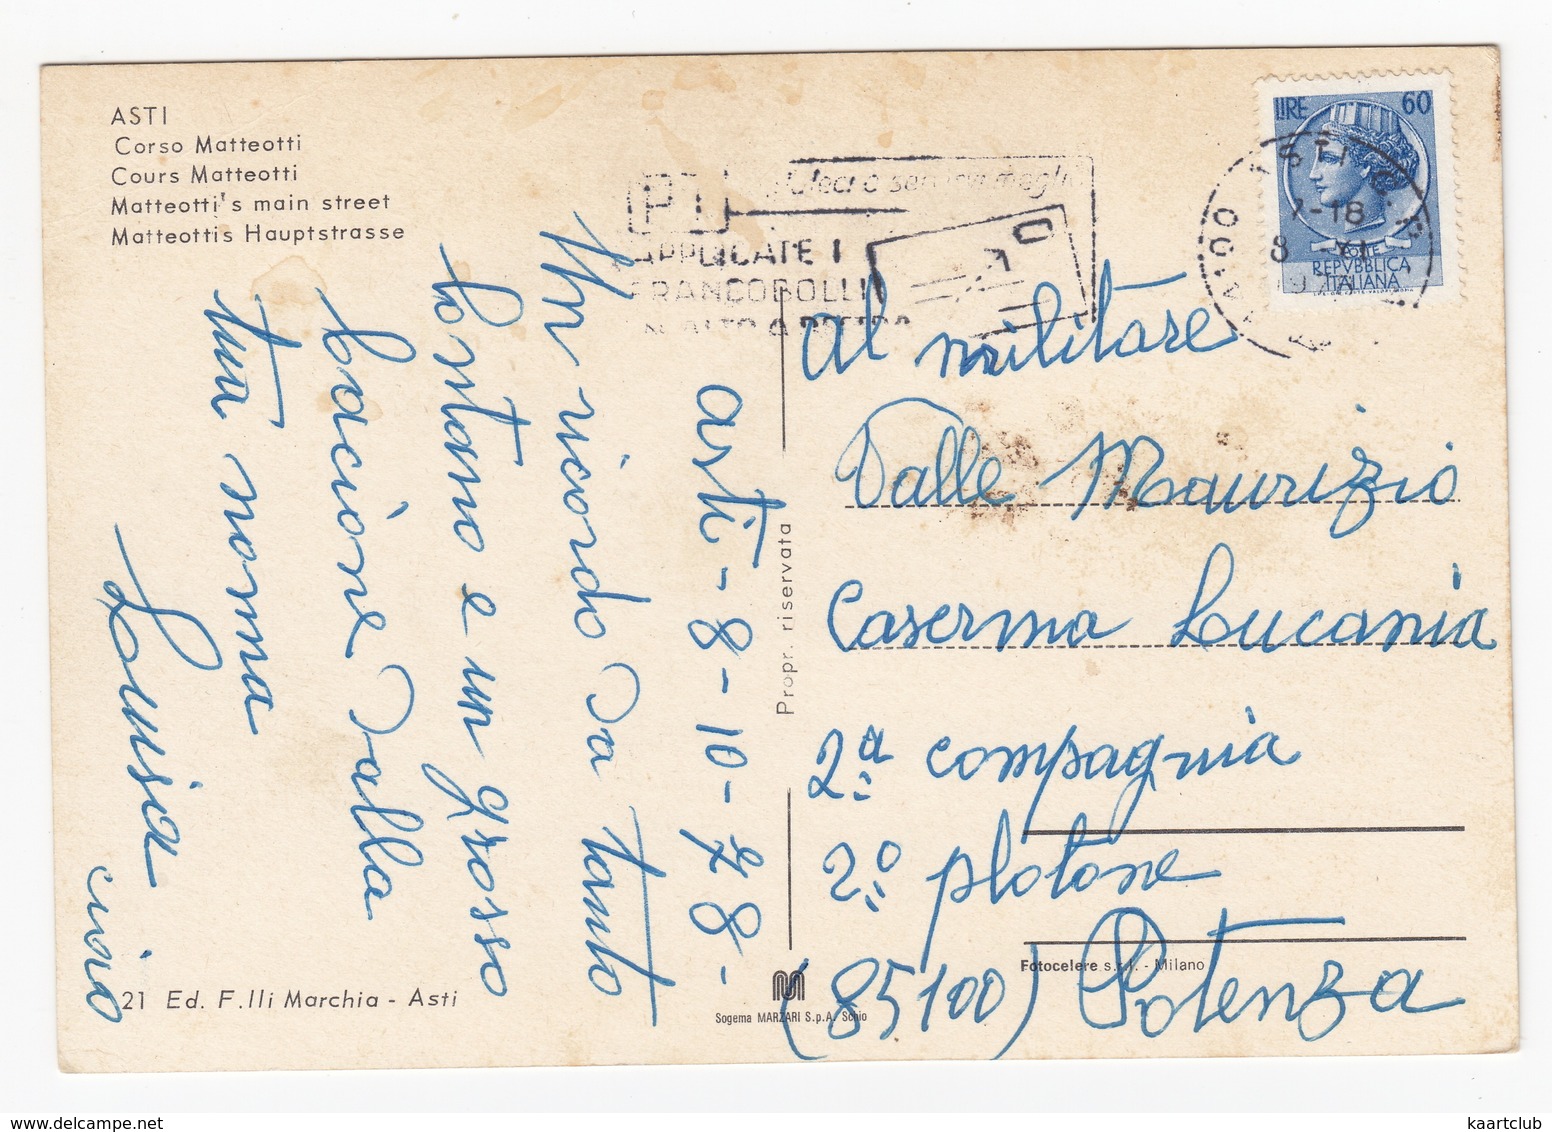 ASTI
Corso Matteotti
Cours Matteotti
Matteotti's main street
Matteottis Hauptstrasse
asti-8-10-78-
Un ricordo da tanto
lontano e un grosso
bacione dalla
tua nonna
Louisa
ciao
21 Ed. F.lli Marchia - Asti
Propr. riservata
Sogema MARZARI S.p.A. Schio
PT
APPLICATE I
FRANCOBOLLI
IN ALTO A DESTRA
LIRE 60
POSTE
REPVBBLICA
ITALIANA
ASTI
17-18
al militare
Valle Maurizio
Caserma Lucania
2ª compagnia
2º plotone
Fotocelere s.r.l. - Milano
(85100) Potenza
kaartclub